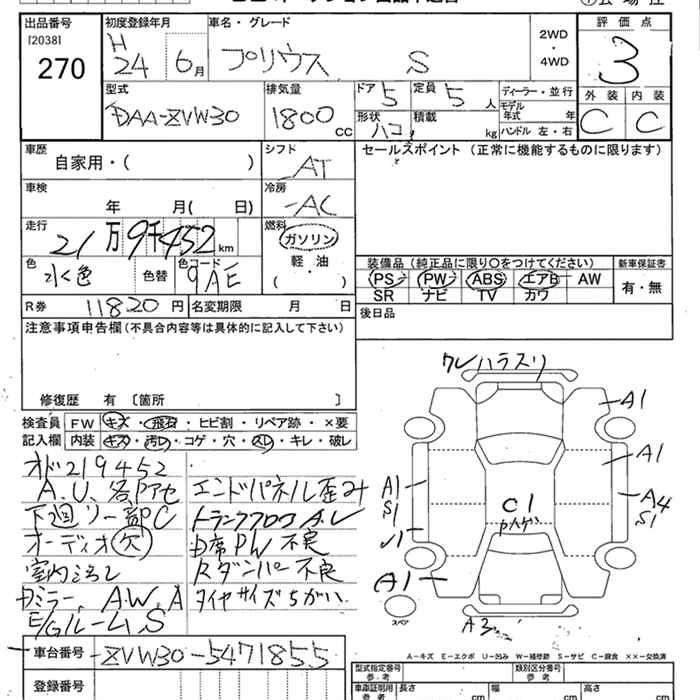 出品番号
[2038]
270
初度登録年月
H
24 6月
車名・グレード
プリウス S
2WD
・
4WD
評価点
3
外装 内装
C C
型式
DAA-ZVW30
排気量
1800 cc
ドア 5
定員 5 人
形状 ハコ
積載 kg
ディーラー・並行
モデル年式 年
ハンドル 左・右
車歴
自家用・( )
シフト
AT
セールスポイント (正常に機能するものに限ります)
車検
年 月( 日)
冷房
AC
走行
21万9千452 km
燃料
ガソリン
軽・油
( )
色
水色
色替
色コード
9AE
装備品 (純正品に限り○をつけてください)
PS PW ABS エアB AW
SR ナビ TV カワ
新車保証書
有・無
R券 11820 円
名変期限 月 日
後日品
注意事項申告欄 (不具合内容等は具体的に記入して下さい)
修復歴 有 〔箇所 〕
検査員記入欄
FW キズ・飛石・ヒビ割・リペア跡・×要
内装 キズ・汚レ・コゲ・穴・スレ・キレ・破レ
オド219452
A.U、各Pアセ
下廻リ一部PC
オーディオ欠
室内ヨゴレ
カミラー、A.W、A
E/Gルーム S
エンドパネル歪み
トランクフロアA.U
助席PW不良
Rダンパー不良
タイヤサイズちがい
ワレハラスリ
A1
A1
A4
S1
A1
S1
A1
C1
pハゲ
A3
スペア
A-キズ E-エクボ U-凹み W-補修跡 S-サビ C-腐食 XX-交換済
車台番号 ZVW30-5471855
登録番号
型式指定番号
類別区分番号
車庫証明用参考
長さ cm
幅 cm
高さ